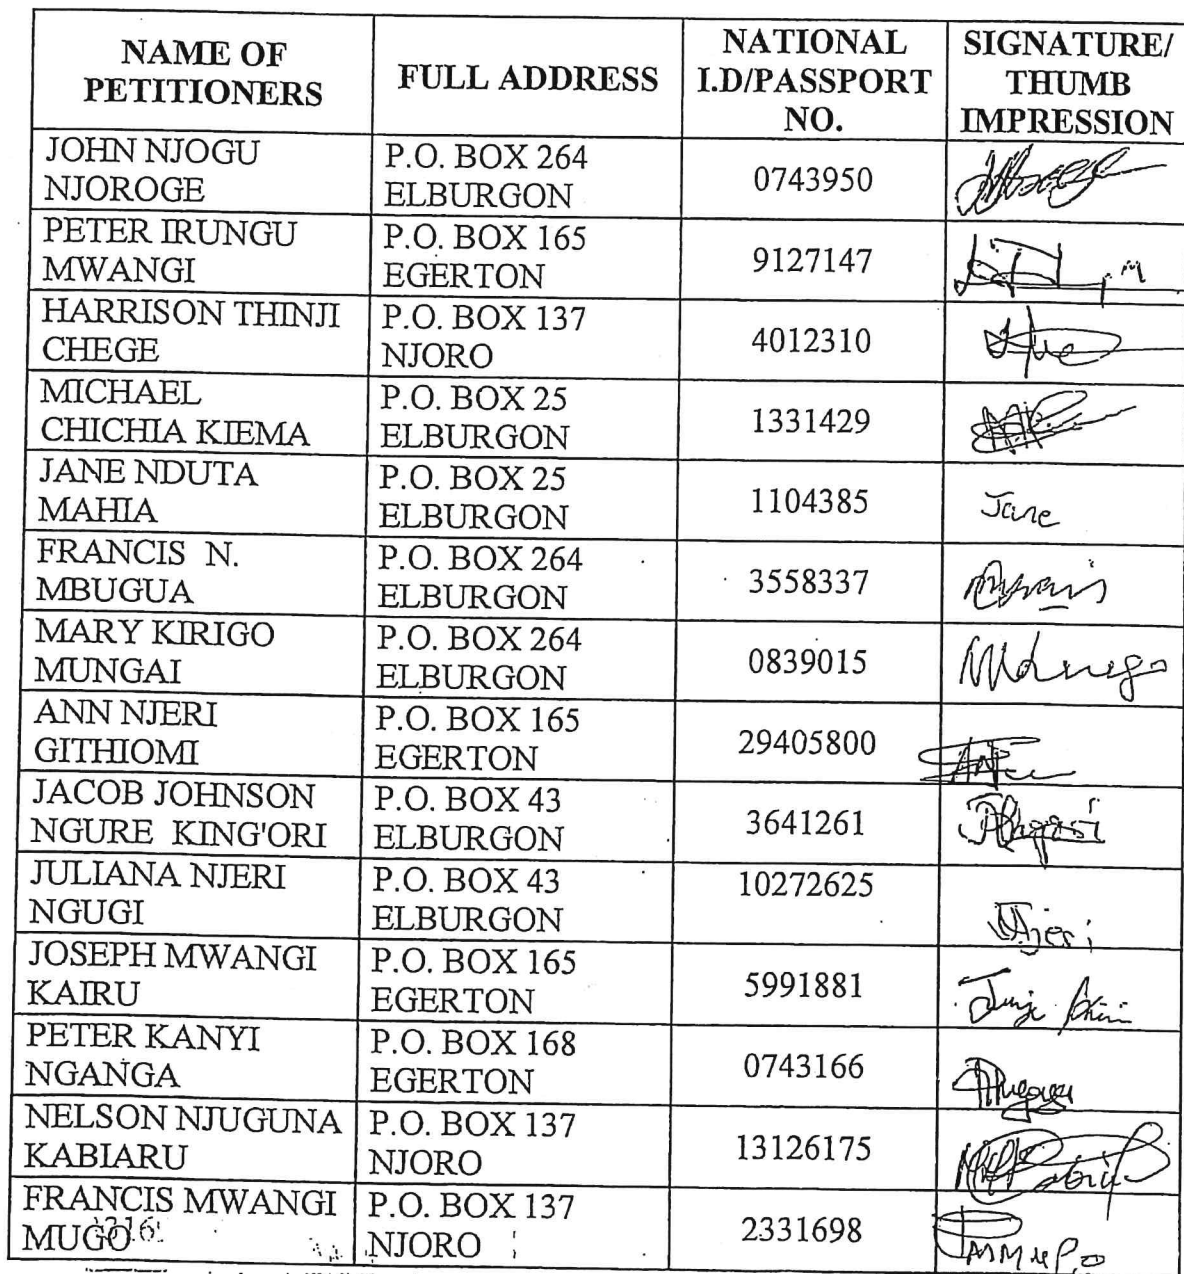 NAME OF
PETITIONERS
FULL ADDRESS
NATIONAL
I.D/PASSPORT
NO.
SIGNATURE/
THUMB
IMPRESSION
JOHN NJOGU
NJOROGE
P.O. BOX 264
ELBURGON
0743950
PETER IRUNGU
MWANGI
P.O. BOX 165
EGERTON
9127147
HARRISON THINJI
CHEGE
P.O. BOX 137
NJORO
4012310
MICHAEL
CHICHIA KIEMA
P.O. BOX 25
ELBURGON
1331429
JANE NDUTA
MAHIA
P.O. BOX 25
ELBURGON
1104385
Jane
FRANCIS N.
MBUGUA
P.O. BOX 264
ELBURGON
3558337
MARY KIRIGO
MUNGAI
P.O. BOX 264
ELBURGON
0839015
ANN NJERI
GITHIOMI
P.O. BOX 165
EGERTON
29405800
JACOB JOHNSON
NGURE KING'ORI
P.O. BOX 43
ELBURGON
3641261
JULIANA NJERI
NGUGI
P.O. BOX 43
ELBURGON
10272625
Njeri
JOSEPH MWANGI
KAIRU
P.O. BOX 165
EGERTON
5991881
PETER KANYI
NGANGA
P.O. BOX 168
EGERTON
0743166
NELSON NJUGUNA
KABIARU
P.O. BOX 137
NJORO
13126175
FRANCIS MWANGI
MUGO
P.O. BOX 137
NJORO
2331698